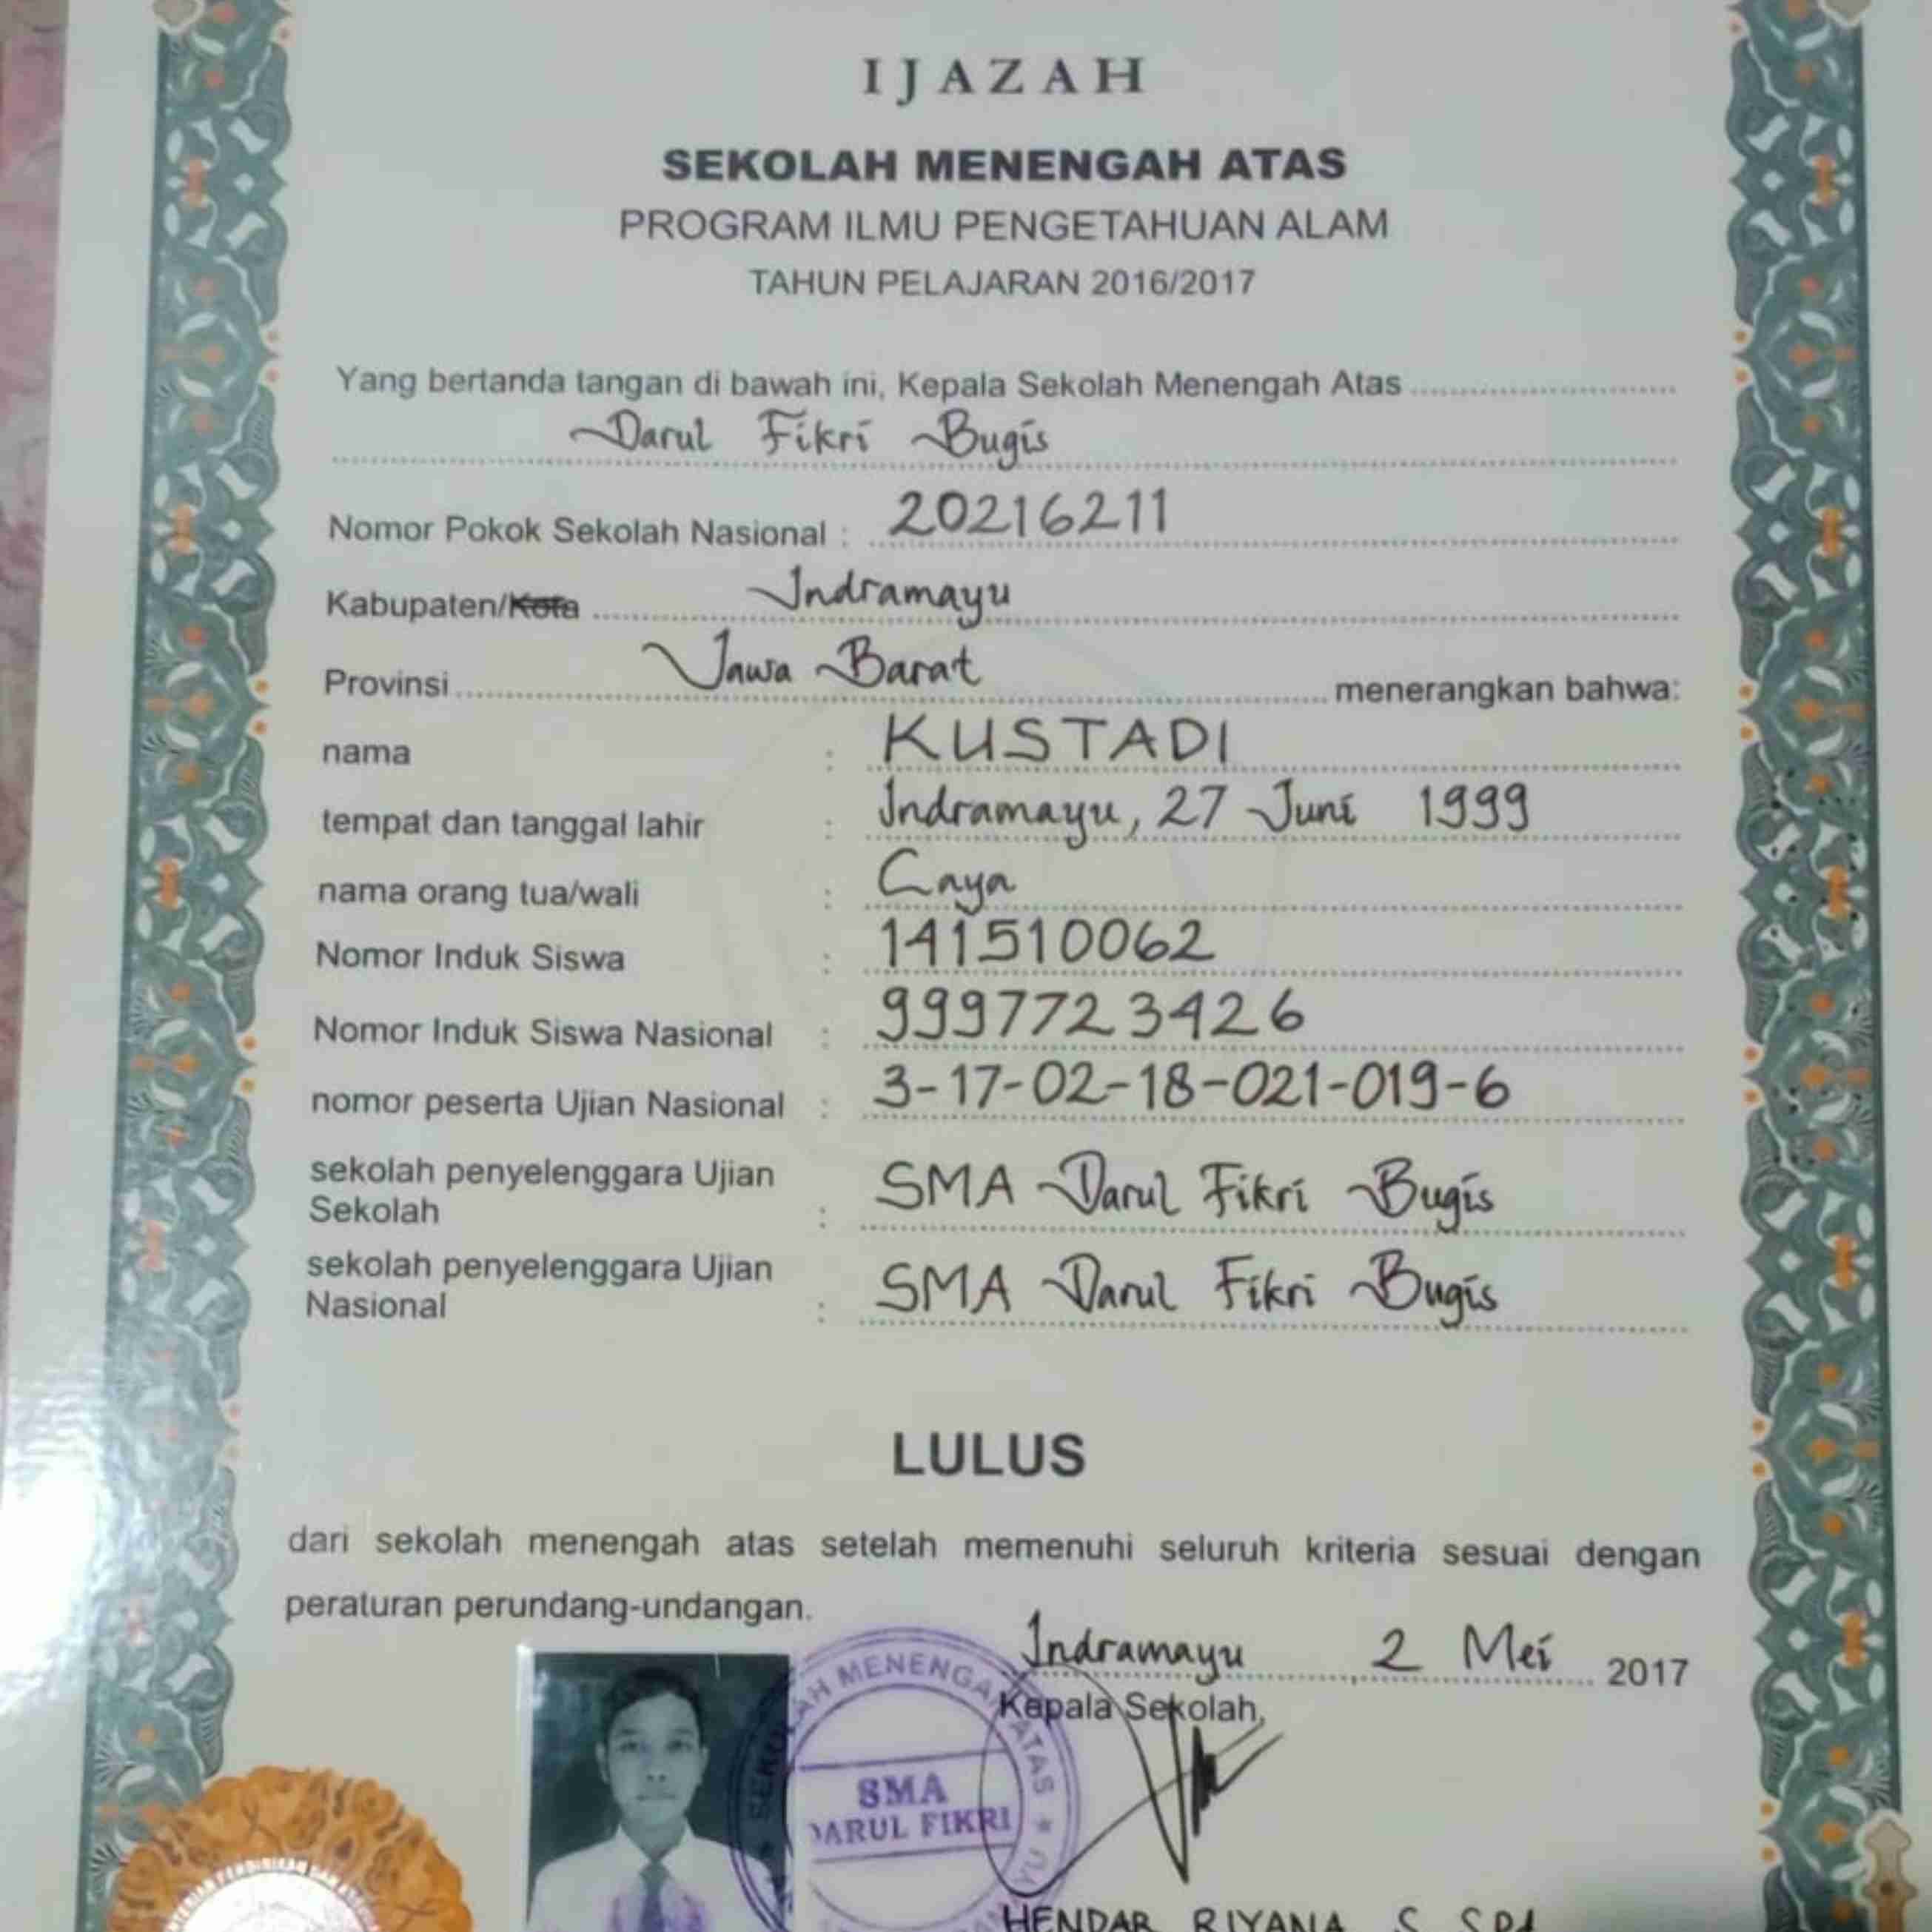 IJAZAH
SEKOLAH MENENGAH ATAS
PROGRAM ILMU PENGETAHUAN ALAM
TAHUN PELAJARAN 2016/2017
Yang bertanda tangan di bawah ini, Kepala Sekolah Menengah Atas
Darul Fikri Bugis
Nomor Pokok Sekolah Nasional : 20216211
Kabupaten/Kota Indramayu
Provinsi Jawa Barat menerangkan bahwa:
nama : KUSTADI
tempat dan tanggal lahir : Indramayu, 27 Juni 1999
nama orang tua/wali : Caya
Nomor Induk Siswa : 141510062
Nomor Induk Siswa Nasional : 9997723426
nomor peserta Ujian Nasional : 3-17-02-18-021-019-6
sekolah penyelenggara Ujian
Sekolah : SMA Darul Fikri Bugis
sekolah penyelenggara Ujian
Nasional : SMA Darul Fikri Bugis
LULUS
dari sekolah menengah atas setelah memenuhi seluruh kriteria sesuai dengan
peraturan perundang-undangan.
Indramayu, 2 Mei 2017
Kepala Sekolah,
SEKOLAH MENENGAH ATAS
SMA
DARUL FIKRI
HENDAR RIYANA S, SPd